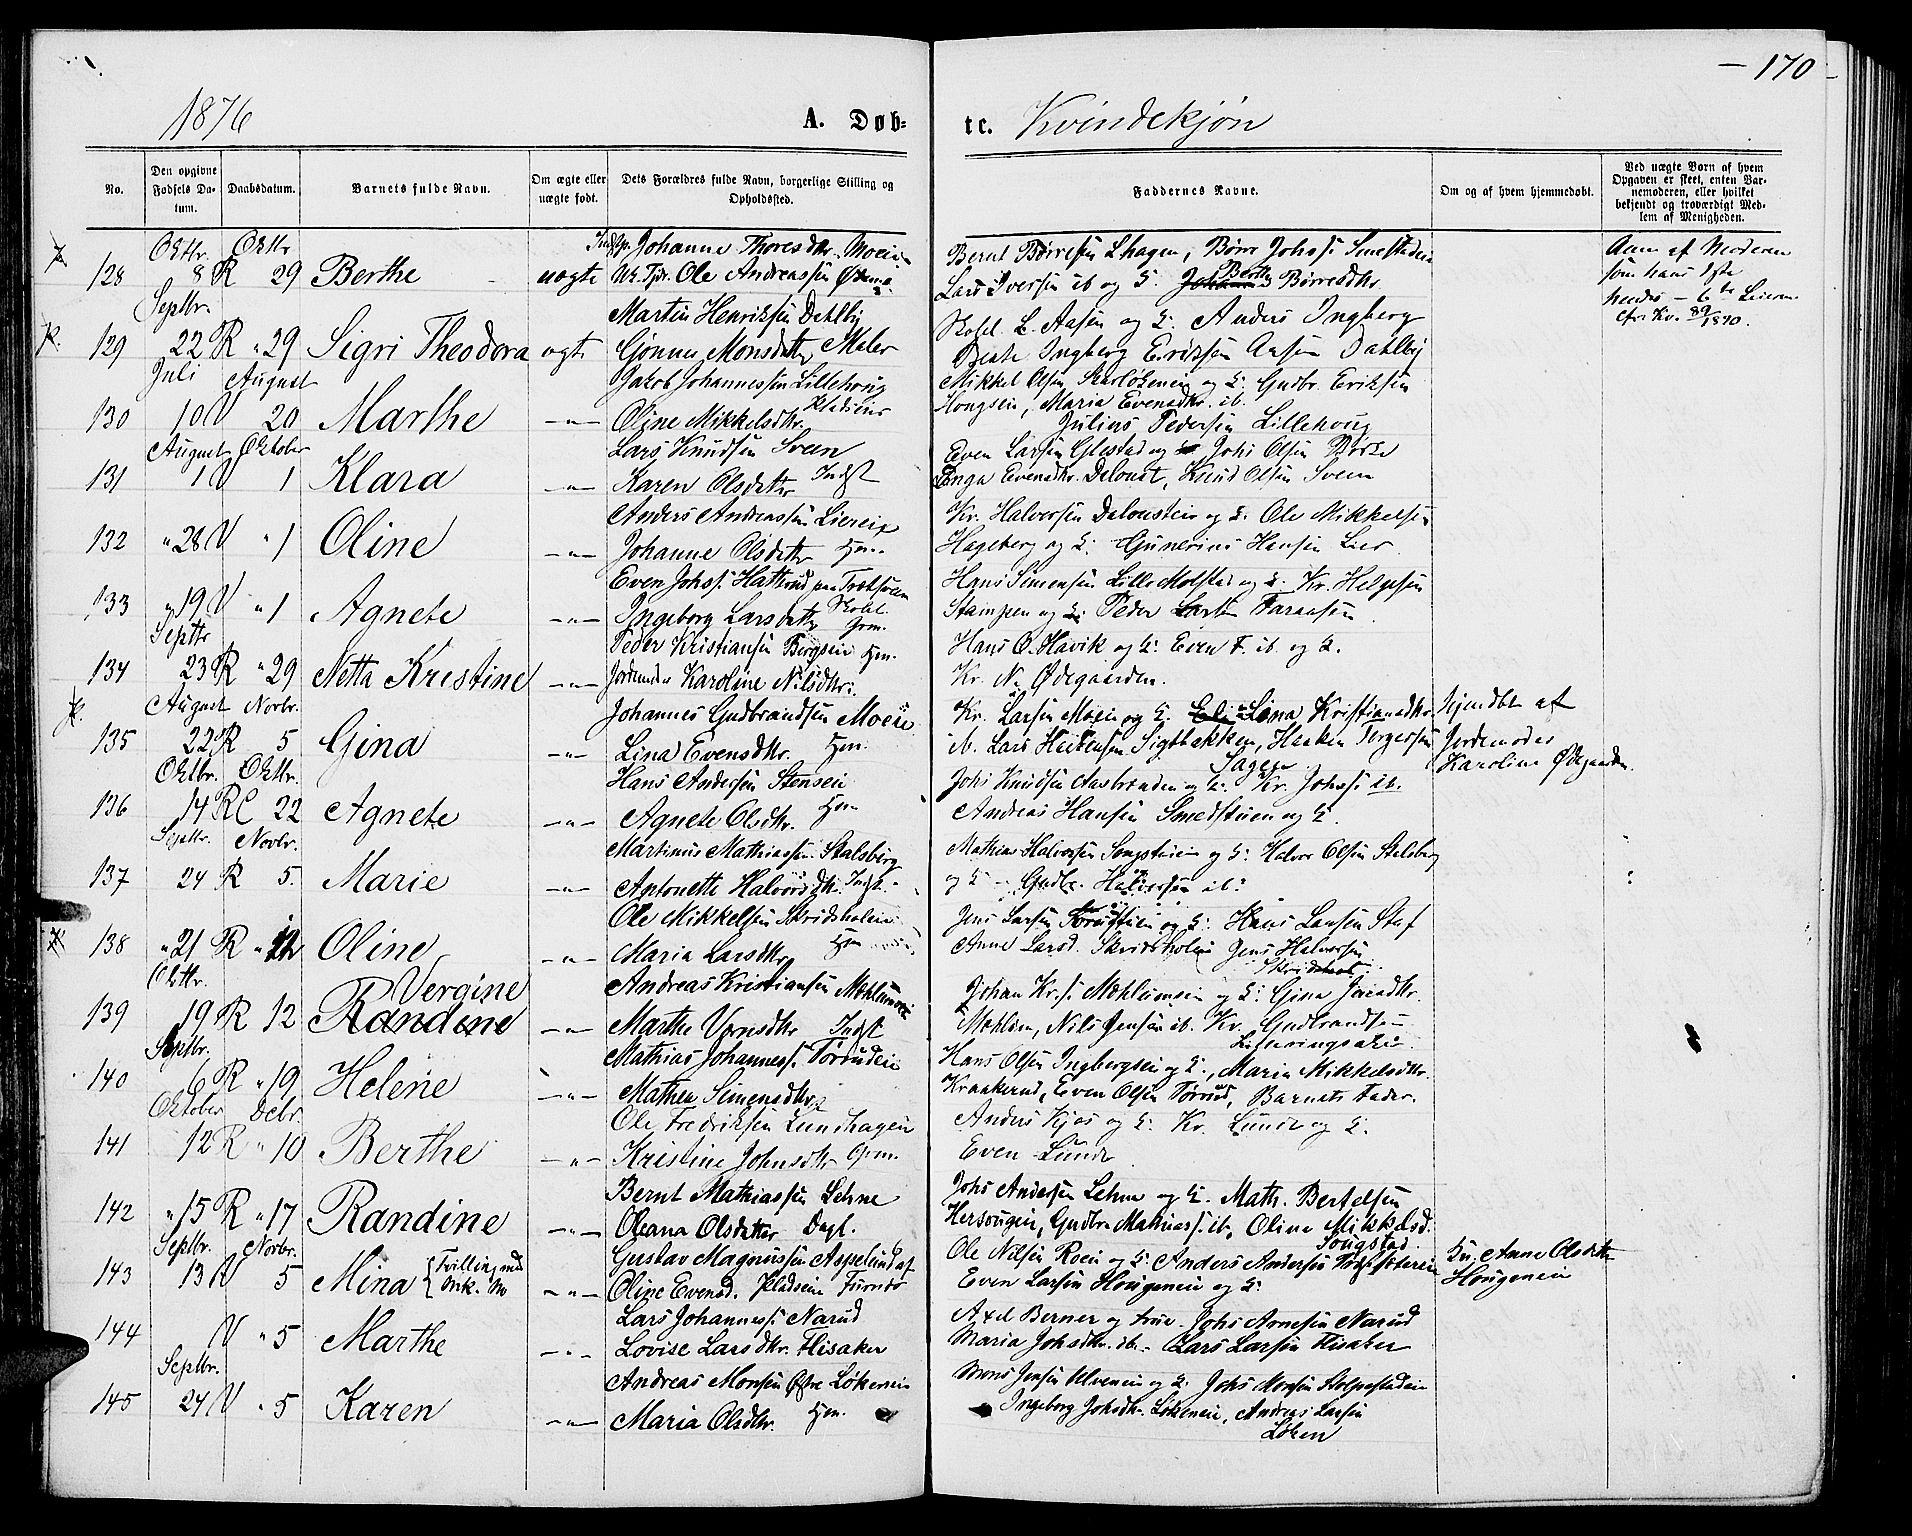 170
1876
A. Døb-
te. Kvindekjøn
No.
Den opgivne Fødsels Datum.
Daabsdatum.
Barnets fulde Navn.
Om ægte eller uægte født.
Dets Forældres fulde Navn, borgerlige Stilling og Opholdssted.
Faddernes Navne.
Om og af hvem hjemmedøbt.
Ved uægte Børn af hvem Opgaven er skeet, enten Barnemoderen, eller hvilket bekjendt og troværdigt Medlem af Menigheden.
Oktbr. Oktbr
128 8 R 29 Berthe uægte
Johanne Thoresdtr. Moeie
Ole Andreassen
Bernt Børresen Lhagen, Børre Johs. Smedstadeie
Lars Iversen ib og H. Berthe Børresdtr.
Anm af Moderen
som hans 1ste
hendes – 6te Leierm.
cfr. Kv. 89/1870.
Septbr.
129 22 R " 29 Sigri Theodora ægte
Martin Henriksen Dehlby
Gönner Monsdatter Maler
L. Aasen og H. Anders Ingberg
Beate Ingberg Eriksen Aasen Dahlby
Juli August
130 10 V 20 Marthe —"—
Jakob Johannessen Lillehoug
Oline Mikkelsdtr.
Mikkel Olsen, og H. Gudbr. Eriksen
Hougseie, Maria Evensdtr. ib.
Julius Pedersen Lillehoug
August Oktober
131 1 V 1 Klara —"—
Lars Knudsen Sveen
Karen Olsdatter Indst
Even Larsen Glestad og Johs Olsen Børke
Inga Evensdtr. Deloust, Knud Olsen Sveen
132 " 28 V " 1 Oline —"—
Anders Andreassen Liereie
Johanne Olsdatter Hjm.
Kr. Halvorsen Delousteie og H. Ole Mikkelsen
Hageberg og H. Gunerius Hansen Lier
133 " 19 V " 1 Agnete —"—
Even Johs. Hattrud paa
Ingeborg Larsdatter
Hans Simensen Lille Molstad og H. Kr. Helgesen
Stampen og H. Peder
Septbr
134 23 R " 29 Netta Kristine —"—
Peder Kristiansen Bergseie Hjm.
Jordemoder Karoline Nilsdtr.
Hans O. Havik og H. Even F. ib. og H.
Kr. N. Ødegaarden.
August Novbr.
135 22 R 5 Gina —"—
Johannes Gudbrandsen Moeie
Lina Evensdtr. Hjm.
Kr. Larsen Moeie og H. Lina Kristiansdtr.
ib. Lars Sigtbakken, Haaken Torgersen
Sagen
Hjemdbt af
Jordemoder
Karoline Ødegaarden.
Oktbr. Oktbr.
136 14 R C 22 Agnete —"—
Hans Andersen Stenseie
Agnete Olsdtr. Hjm
Johs Knudsen Aasbraaden og H. Kr. Johs. ib.
Andreas Hansen Smedstuen og H.
Septbr. Novbr.
137 24 R 5. Marie —"—
Martinus Mathiassen Stalsberg
Antonette Halvorsdtr. Indst.
Mathias Halvorsen og H. Halvor Olsen Stalsberg
og H – Gudbr. Halvorsen ib.
138 " 21 R " 12 Oline —"—
Ole Mikkelsen Skridsholeie
Maria Larsdtr. Hjm
Jens Larsen og H. Hans Larsen Stef
Anne Larsd. Skridshol Jens Halvorsen
Skridshol.
Oktbr.
Vergine
139 19 R 12 Randine —"—
Andreas Kristiansen Mæhlumeie
Marthe Indst
Johan Kr.s. Mæhlumeie og H. Gina
Mæhlum, Nils Jensen ib. Kr. Gudbrandsen
Septbr.
140 6 R " 19 Helene —"—
Mathias Johanness. Tørrudeie
Mathea Simensdtr.
Hans Olsen Ingebergseie og H., Maria Mikkelsdtr.
Kraakerud, Even Olsen Tørrud, Barnets Fader.
Oktober Debr.
141 12 R " 10 Berthe —"—
Ole Fredriksen Lundhagen
Kristine Johnsdtr Hjm.
Anders Kjos og H. Kr. Lunde og H.
Even Lunde
142 " 15 R " 17 Randine —"—
Bernt Mathiassen Lehne
Oleana Olsdatter Dagl.
Johs Andersen Lehne og H. Math. Bertelsen
Hersougeie, Gudbr. Mathiass. ib. Oline Mikkelsd.
Sougstad
Septbr. Novbr.
143 13 V 5 Mina {Tvilling med Mk. No —"—
Gustav Magnussen Aspelund af
Oline Evensd. Pladseie Furnes
Ole Nilsen Roeie og H. Anders Andersen
Even Larsen Hougeneie og H.
Anne Olsdtr
Hougeneie
144 V " 5 Marthe —"—
Lars Johanness. Narud
Lovise Larsdtr. Flisaker
Axel Berner og Frue. Johs Arnesen Narud
Maria Johsdtr. ib. Lars Larsen Flisaker
Septbr.
145 24 V " 5 Karen —"—
Andreas Monsen Østre Løkeneie
Maria Olsdtr. Hjm.
Mons Jensen Ulveneie og H. Johs Monsen Stolpestadeie
Ingeborg Johsdtr. Løkeneie, Andreas Larsen
Løken